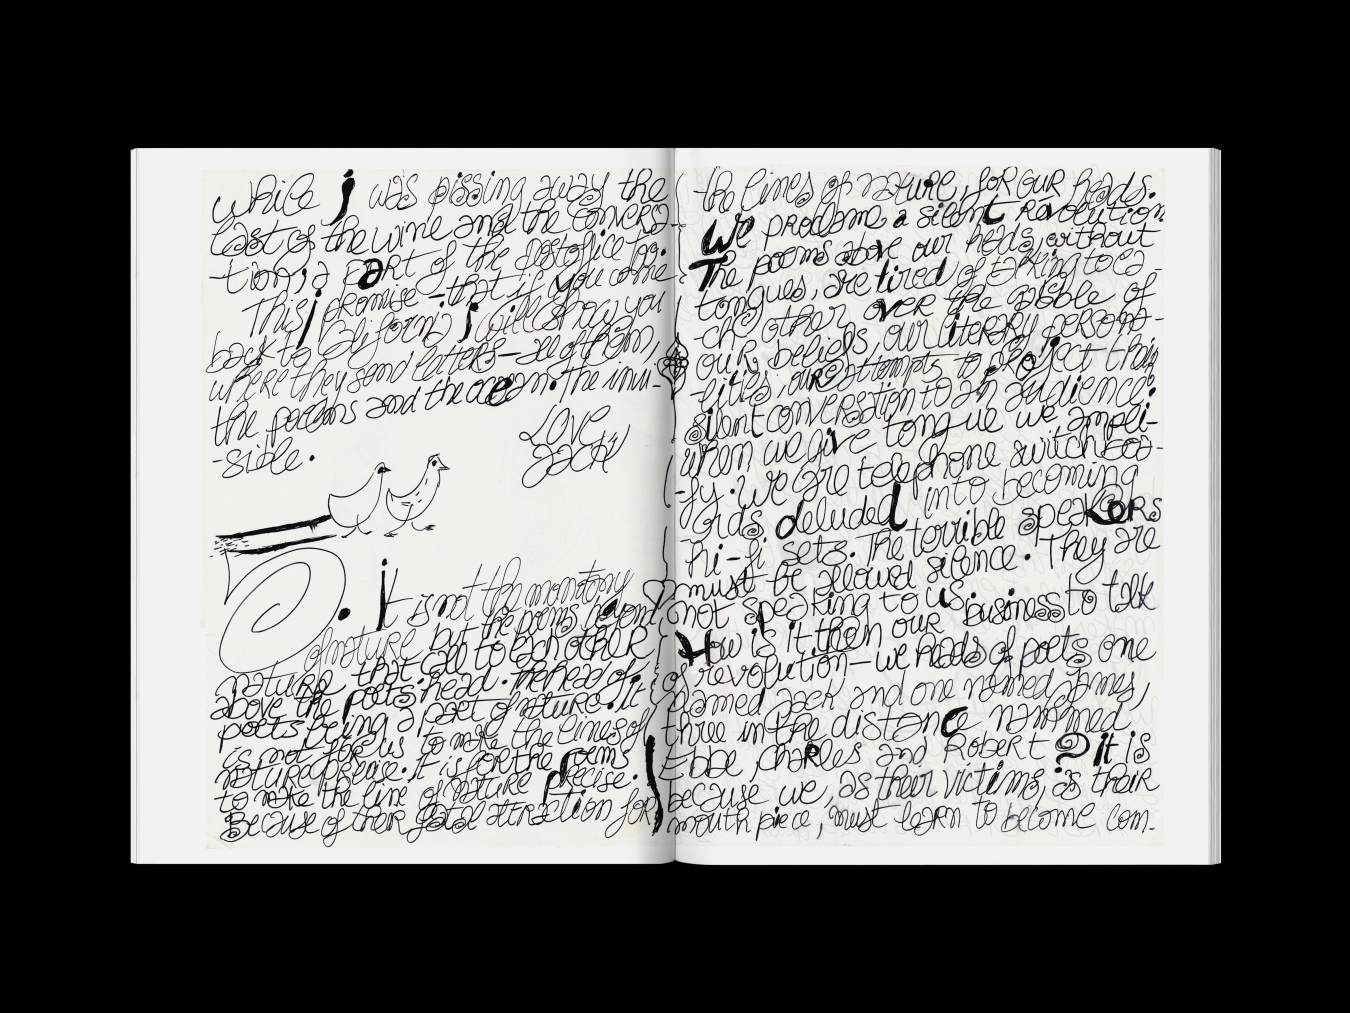 while i was pissing away the
last of the wine and the convers-
tion, a part of the postoffice
This i promise - that if you come
back to California i will show you
where they send letters - all of them,
the poems and the ocean. The invi-
-sible.
Love
Jack
5. It is not the monotony
of nature but the poems beyond
nature that call to each other
above the poets' head. The head of
poets being a part of nature. It
is not for us to make the lines of
nature precise. It is for the poems
to make the line of nature precise.
Because of their fatal attraction for
the lines of nature, for our heads.
We proclaime a silent revolution
The poems above our heads, without
tongues, are tired of talking to ea-
ch other over the gabble of
our beliefs our literary person-
lities, our attempts to project their
silent conversation to an audience.
when we give tongue we ampli-
fy. We are telephone switchboa-
rds deluded into becoming
hi-fi sets. The terrible speakers
must be allowd silence. They are
not speaking to us
How is it then our business to talk
of revolution - we heads of poets one
named Jack and one named James,
three in the distance nammed
Ebbe, Charles and Robert ? it is
because we, as their victims, as their
mouth piece, must learn to become com-